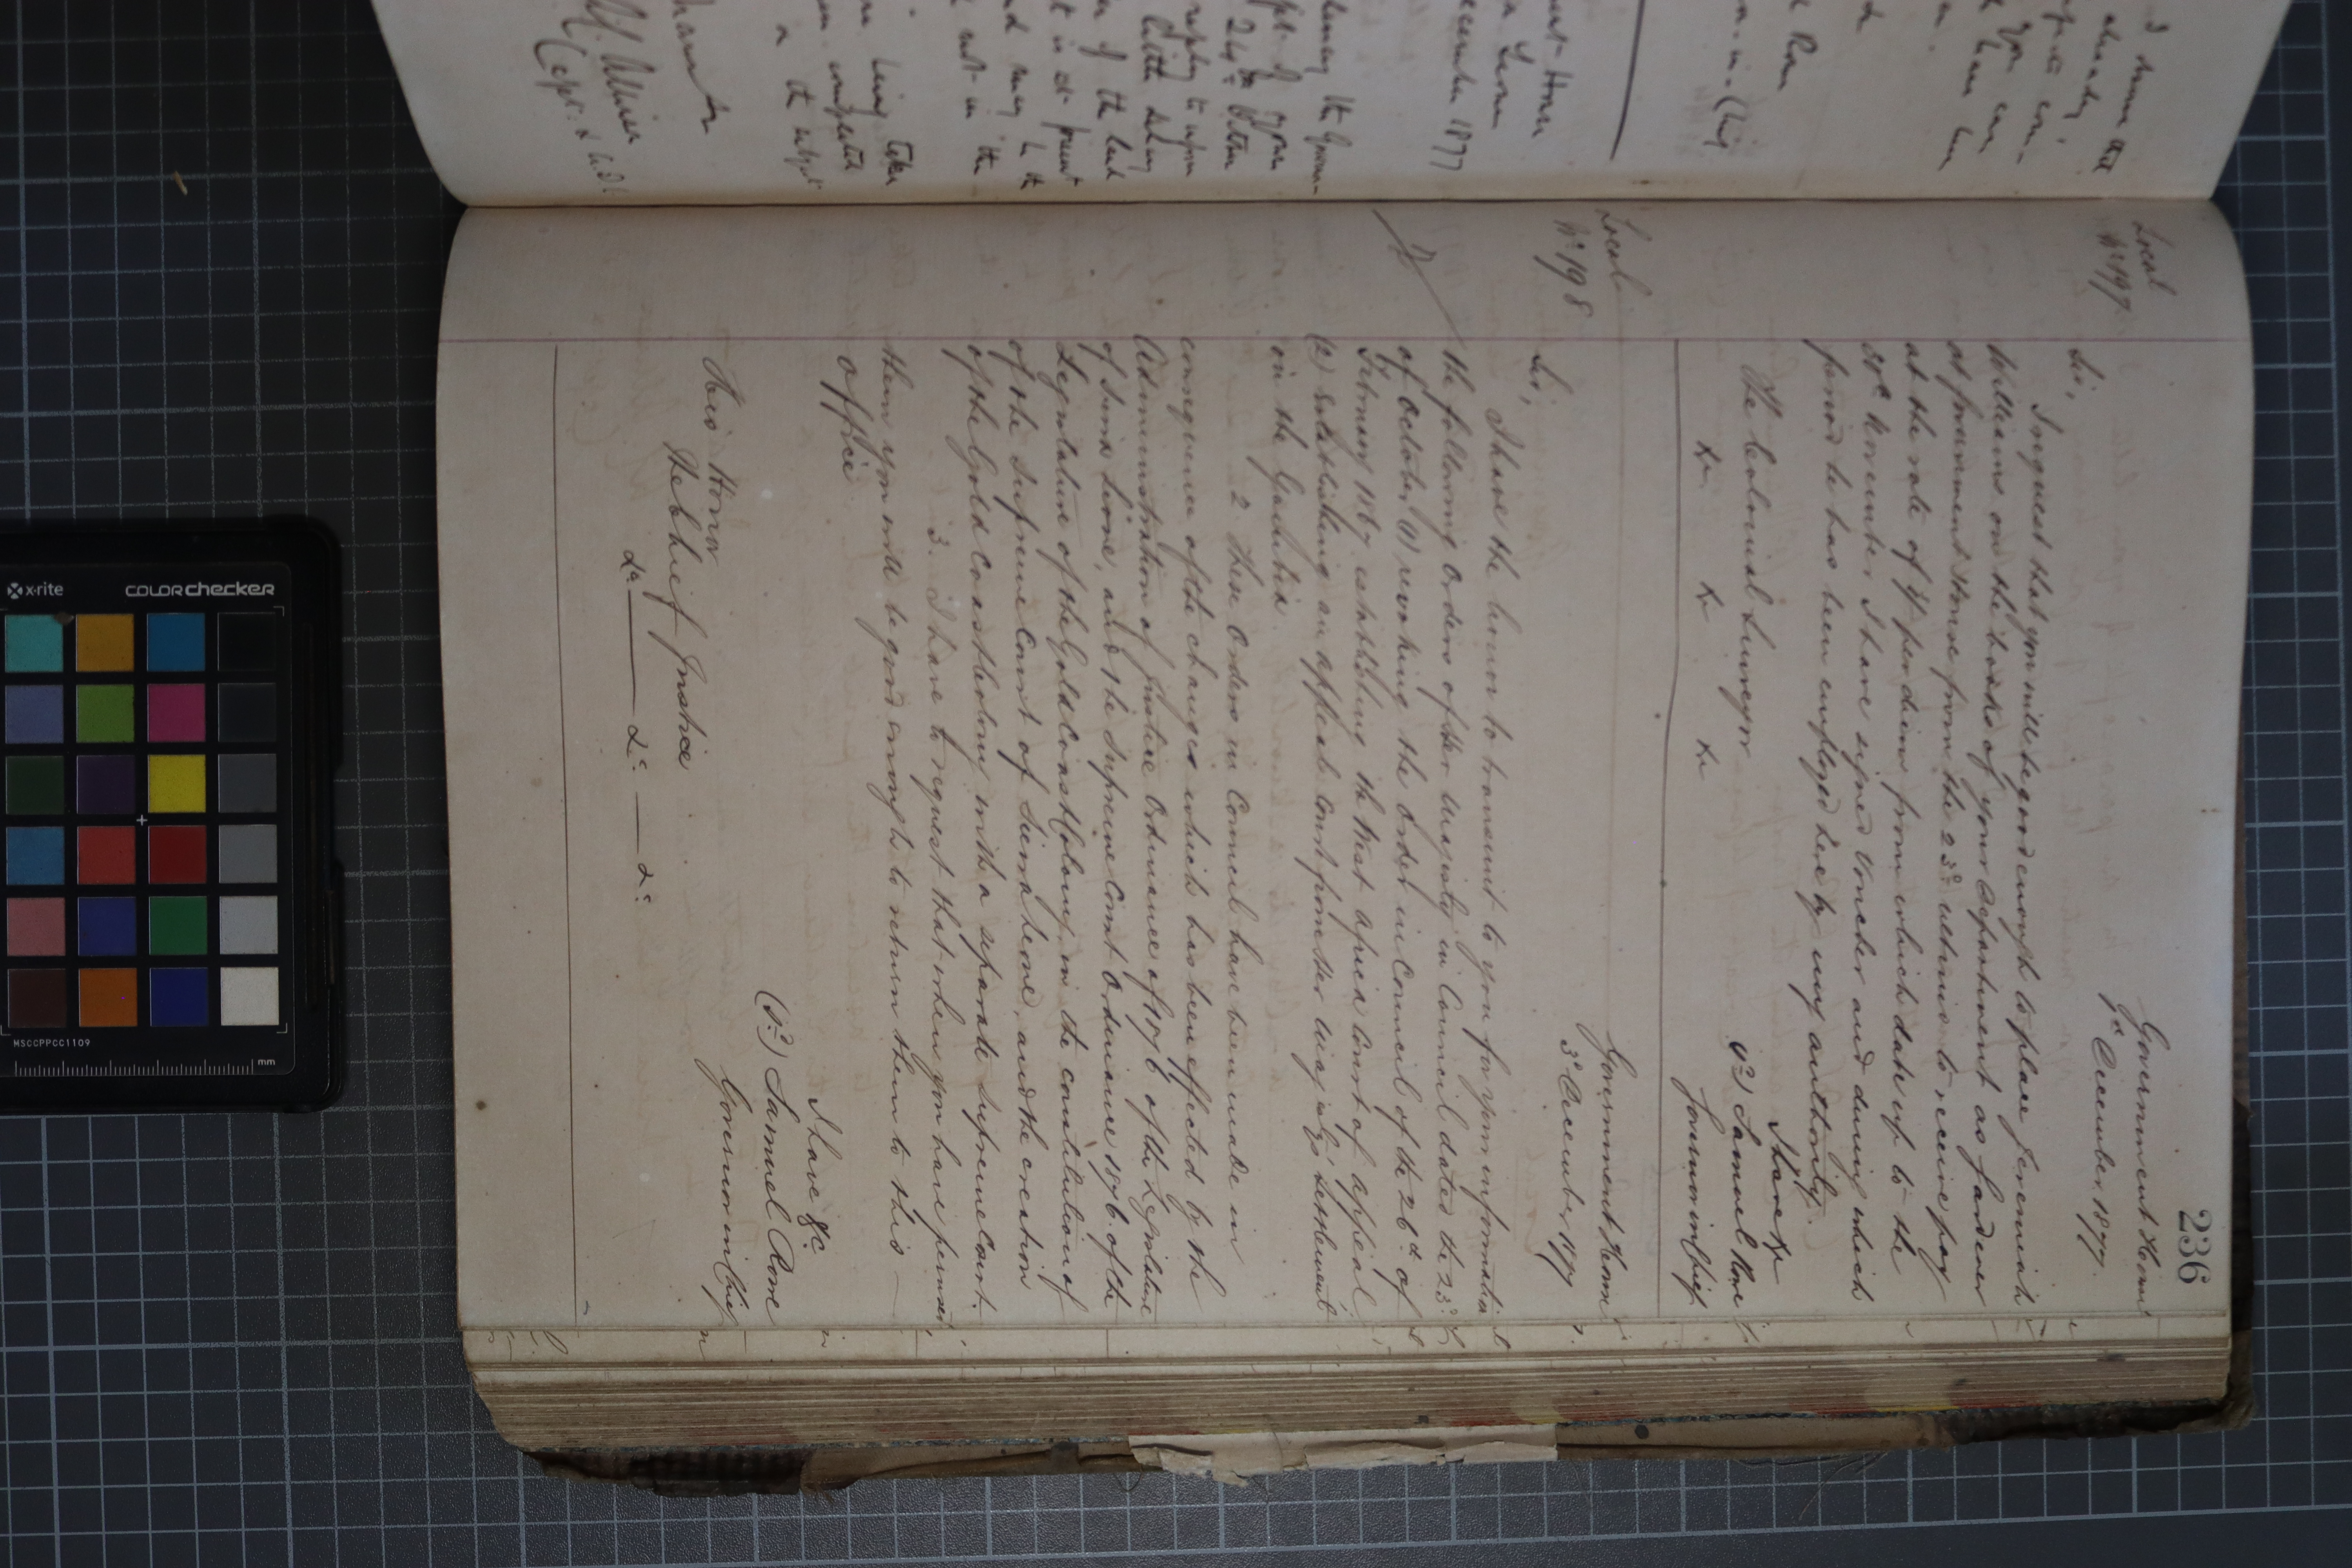 236
Government House
3d December 1877.
Local
No 197.
Sir,
I request that you will be good enough to place Jeremiah
Williams on the books of your Department as Gardener
at Government House from the 23d ultimo to receive pay
at the rate of 1/ per diem from which date up to the
30th November I have signed Voucher and during which
period he has been employed here by my authority.
I have &c
(Sd) Samuel Rowe
Governor in Chief
The Colonial Surveyor
&c &c &c
Local
No 198
Government House
3d December 1877.
Sir,
I have the honor to transmit to you for your information
the following Orders of Her Majesty in Council dated the 23d
of October (1) revoking the Order in Council of the 26th of
February 1867 establishing the West Africa Court of Appeal
(2) establishing an appeal Court from Her Majesty's Settlement
on the Gambia.
2. These Orders in Council have been made in
consequence of the changes which has been effected by the
Administration of Justice Ordinance of 1876 of the Legislature
of Sierra Leone, and the Supreme Court Ordinance 1876. of the
Legislature of the Gold Coast Colony in the constitution of
of the Supreme Court of Sierra Leone, and the creation
of the Gold Coast Colony with a separate Supreme Court.
3. I have to request that when you have perused
them you will be good enough to return them to this
Office.
I have &c.
(Sd) Samuel Rowe
Governor in Chief
His Honor
The Chief Justice
&c &c &c
December 1877
24th October
reply to your
letter
of the land
at present
and may be the
being taken
completed
on the subject
x-rite
COLORchecker
MSCCPPCC1109
mm